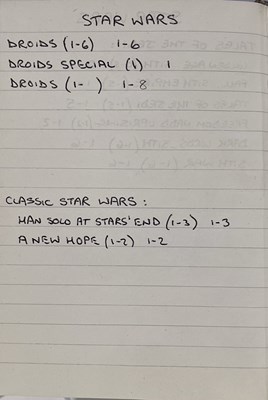 STAR WARS
DROIDS (1-6) 1-6
DROIDS SPECIAL (1) 1
DROIDS (1- ) 1-8
CLASSIC STAR WARS :
HAN SOLO AT STARS' END (1-3) 1-3
A NEW HOPE (1-2) 1-2